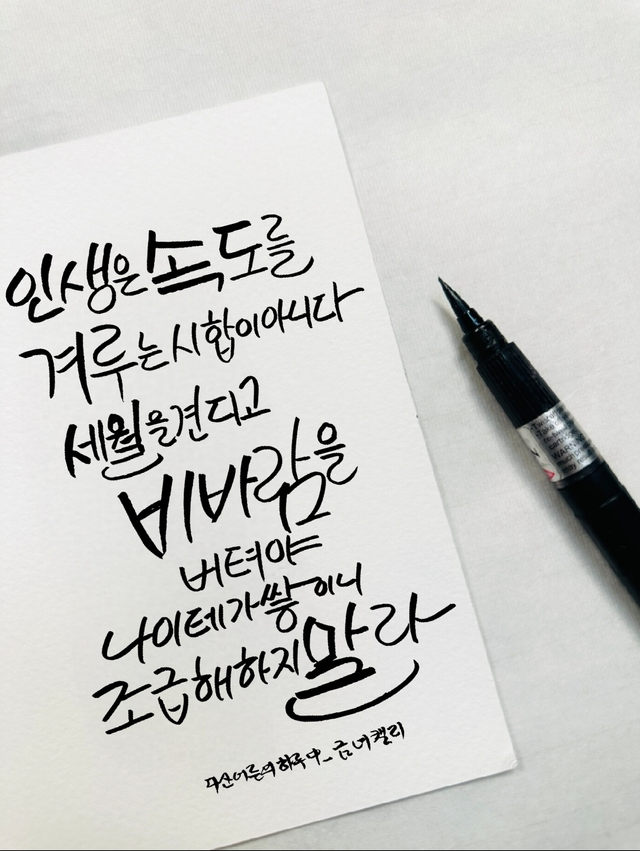 인생은 속도를
겨루는 시합이 아니다
세월을 견디고
비바람을
버텨야
나이테가 쌓이니
조급해하지 말라
다산어른의 하루 中_ 금녀캘리
WARNING